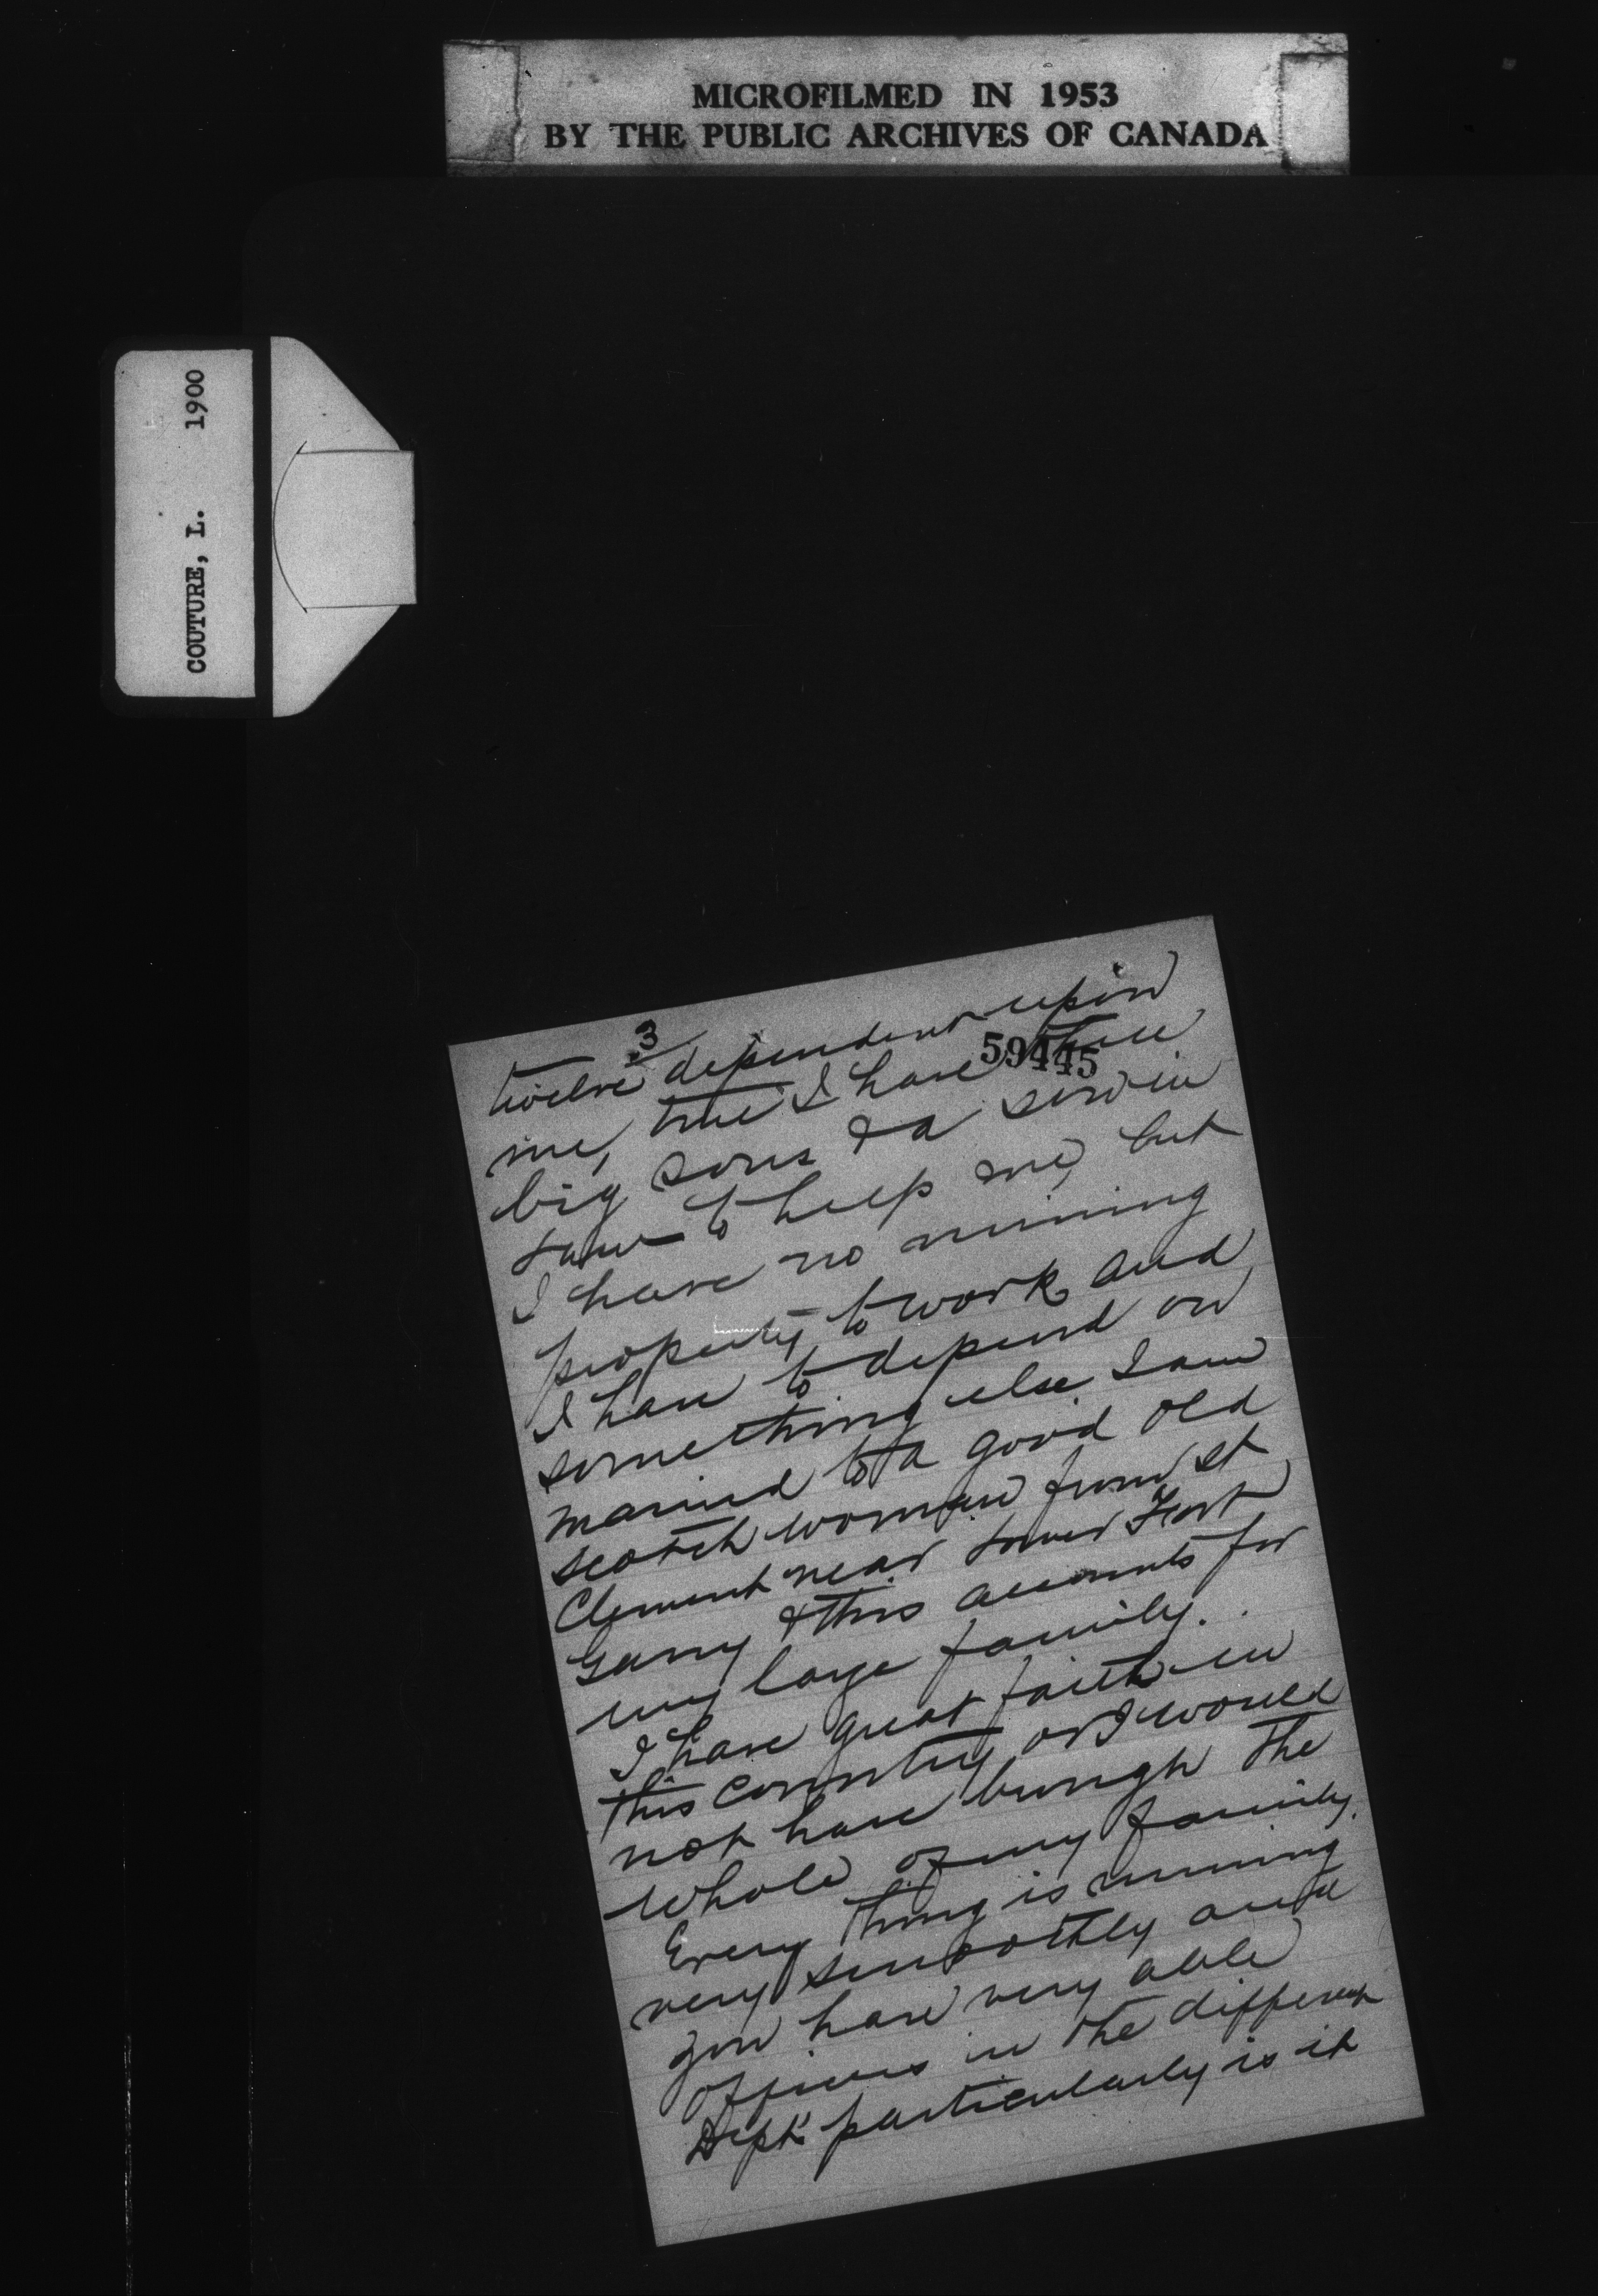 MICROFILMED IN 1953
BY THE PUBLIC ARCHIVES OF CANADA
COUTURE, L. 1900
3
59445
twelve dependent upon
me, true I have three
big sons & a son in
law to help me, but
I have no mining
property to work and
I have to depend on
something else I am
married to a good old
scotch woman from St
Clement near Lower Fort
Garry & this accounts for
my large family.
I have great faith in
this country or I would
not have brough the
whole of my family.
Every thing is running
very smoothly and
you have very able
officers in the different
Dept. particularly is it